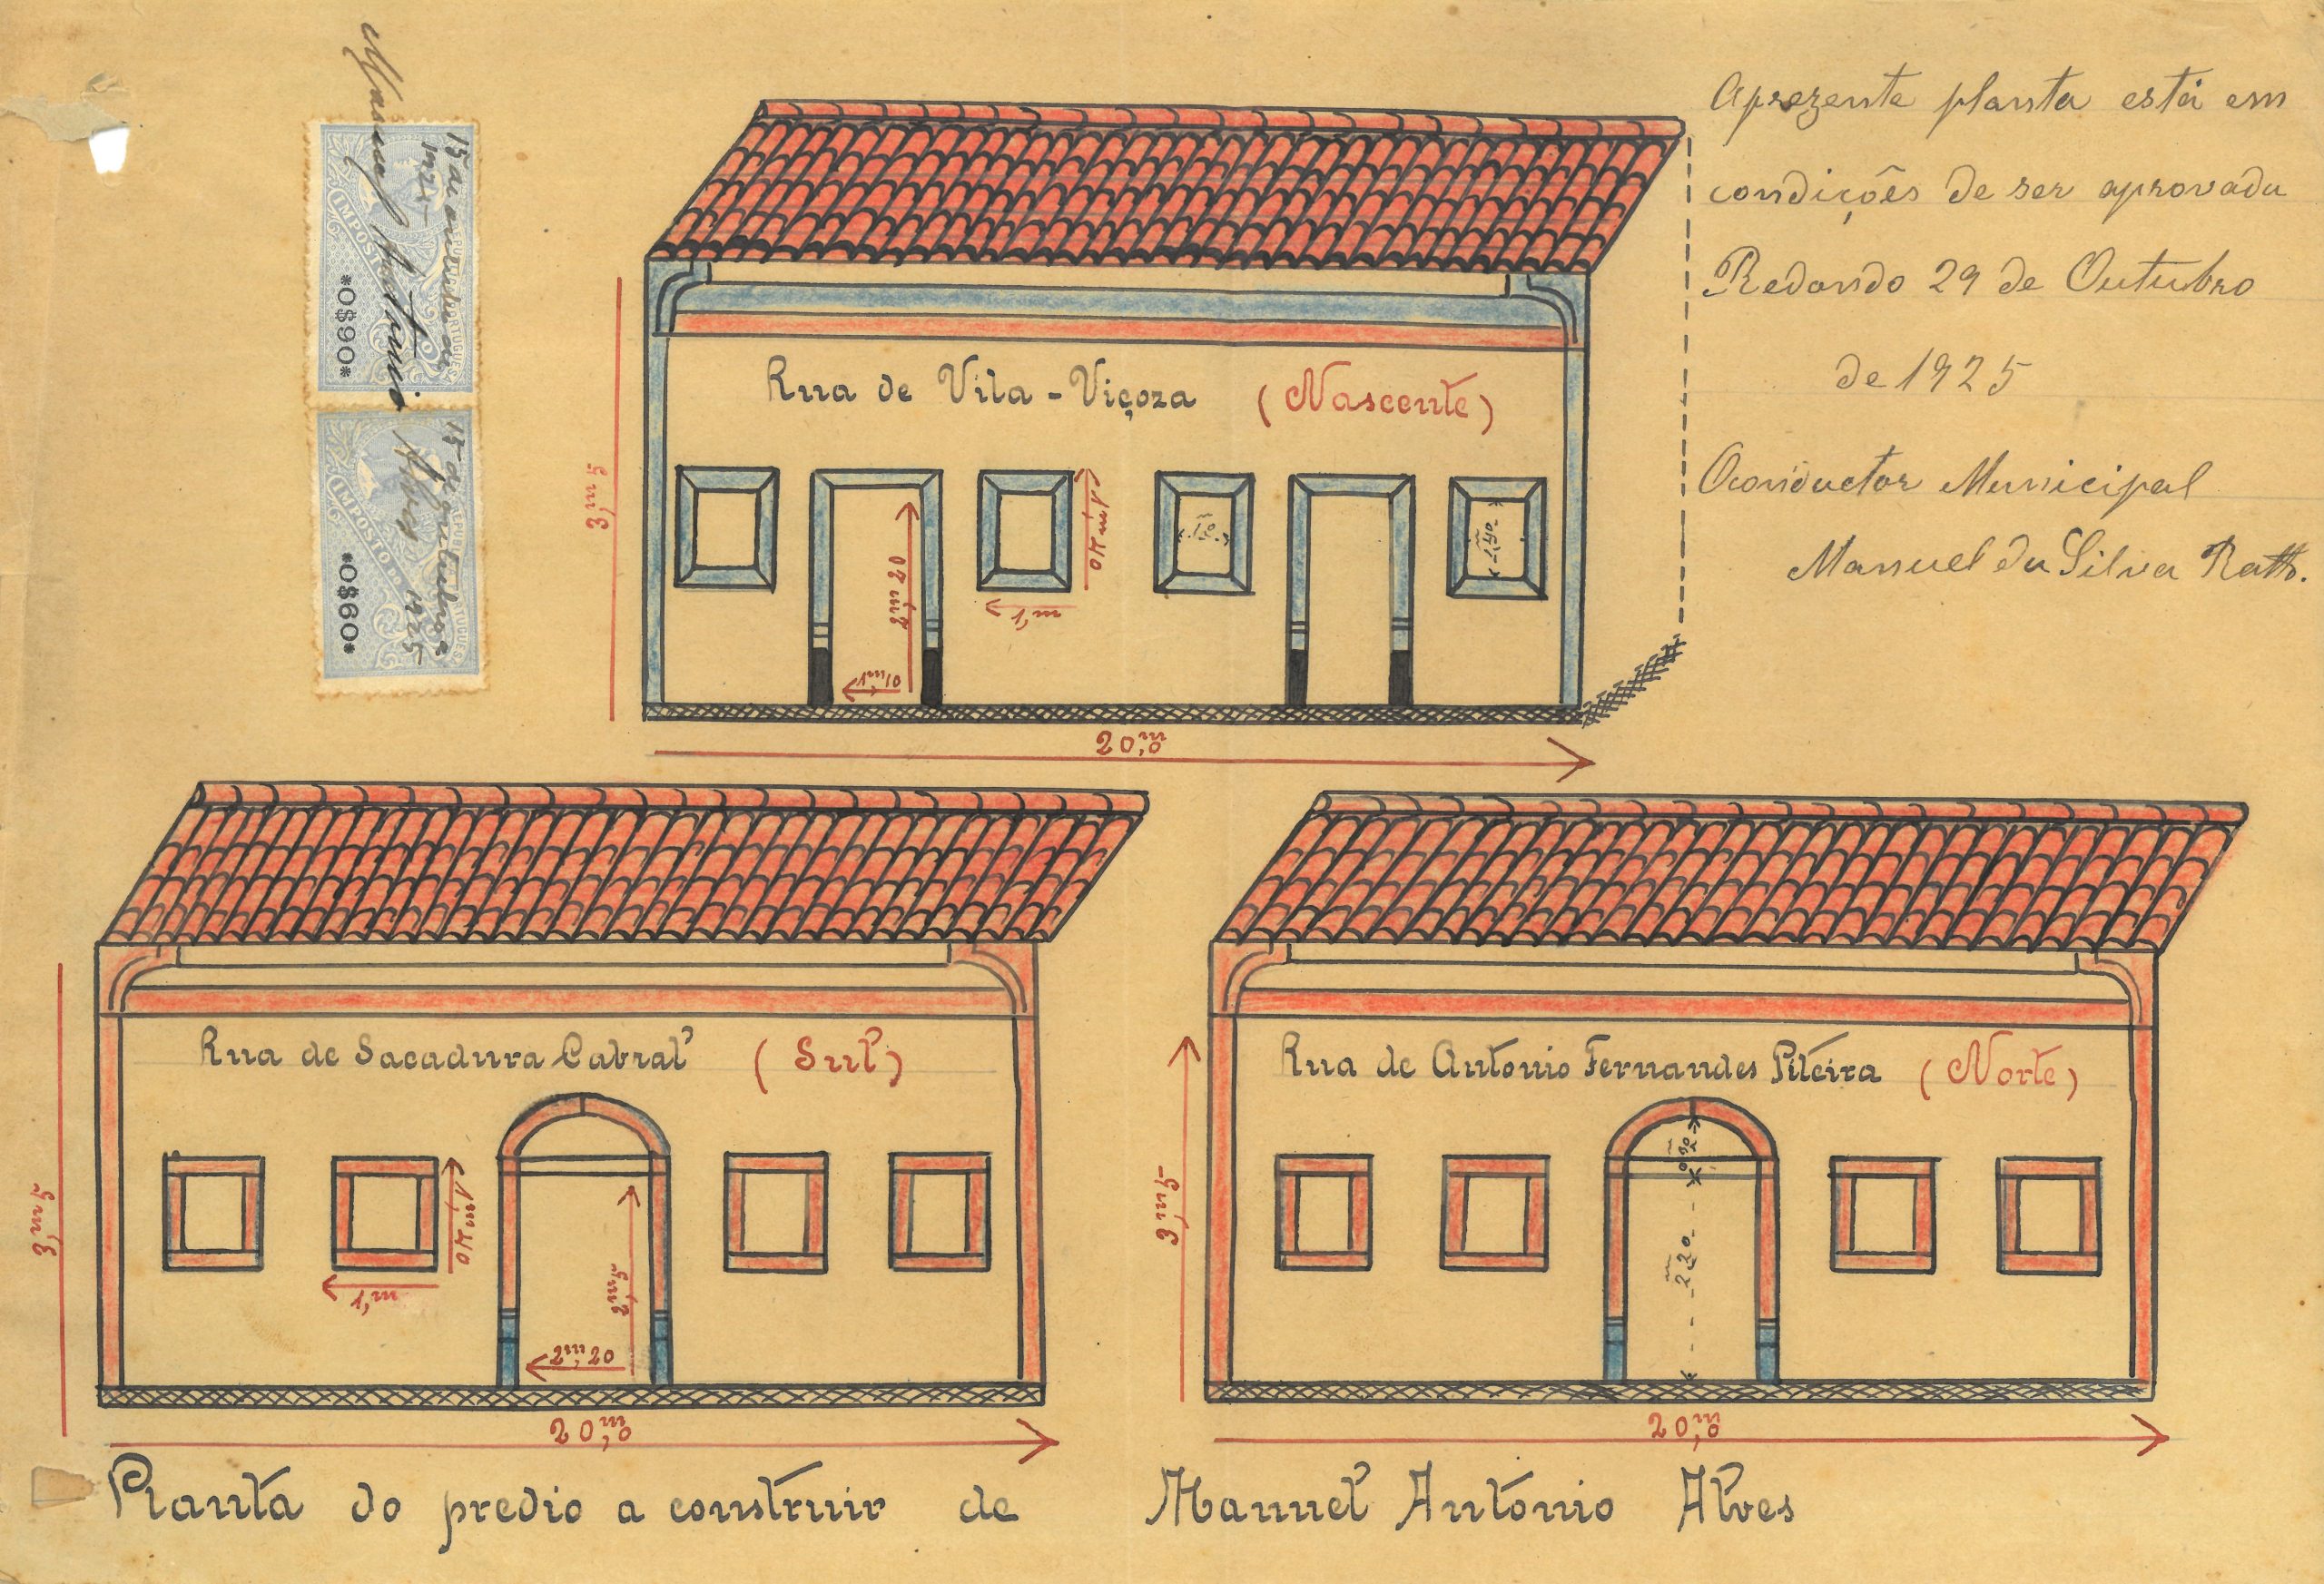 Aprezente planta está em
condições de ser aprovada
Redondo 29 de Outubro
de 1925
Oconductor Municipal
Manuel da Silva Ratto.
Manuel António
Alves
15 de outubro de
1925
IMPOSTO DO
REPUBLICA PORTUGUESA
*0$60*
15 de outubro de
1925
IMPOSTO DO
REPUBLICA PORTUGUESA
*0$60*
Rua de Vila-Viçoza (Nascente)
3,m5
1,m40
1,m
1,m0
1,m40
2,m20
1,m10
20,m0
Rua de Sacadura Cabral (Sul)
3,m5
1,m40
1,m
2,m5
2,m20
20,m0
Rua de António Fernandes Piteira (Norte)
3,m5
2,m20
20,m0
Planta do predio a construir de Manuel António Alves